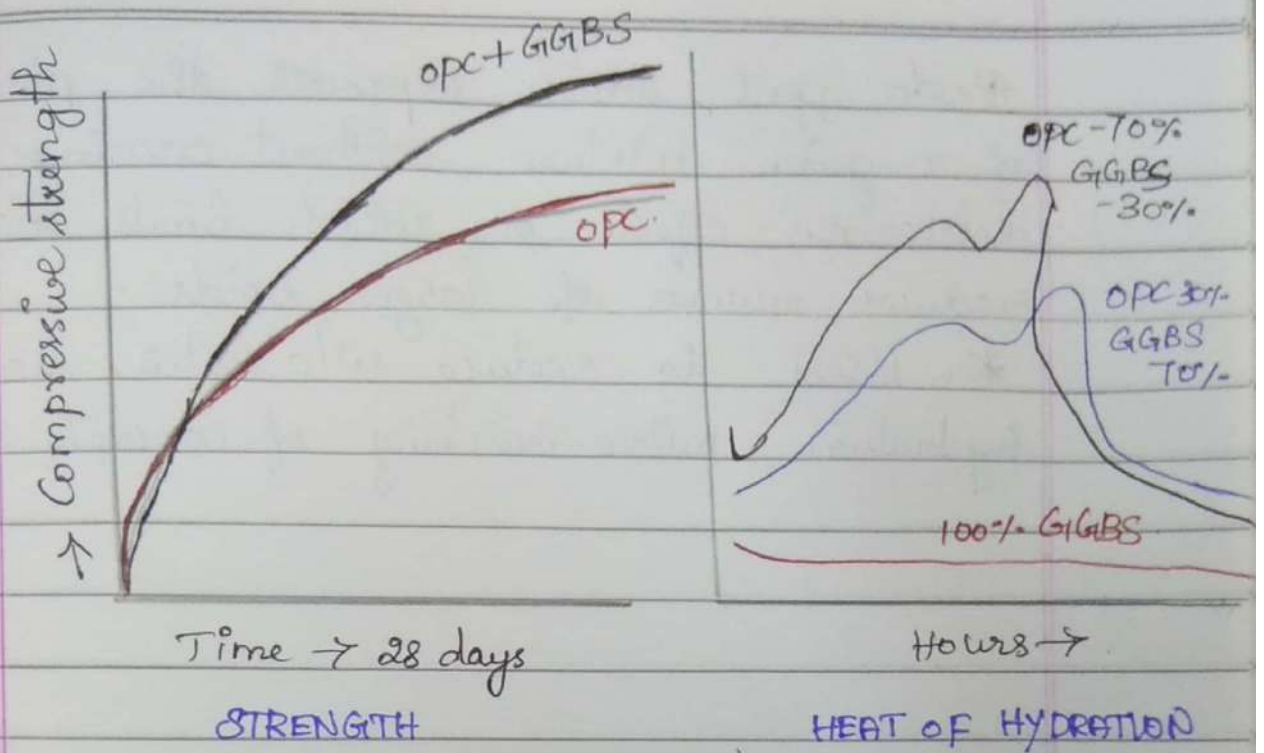 → Compressive strength
OPC + GGBS
OPC.
Time → 28 days
STRENGTH
OPC - 70%
GGBS
- 30%
OPC 30%
GGBS
70%
100% GGBS
Hours →
HEAT OF HYDRATION